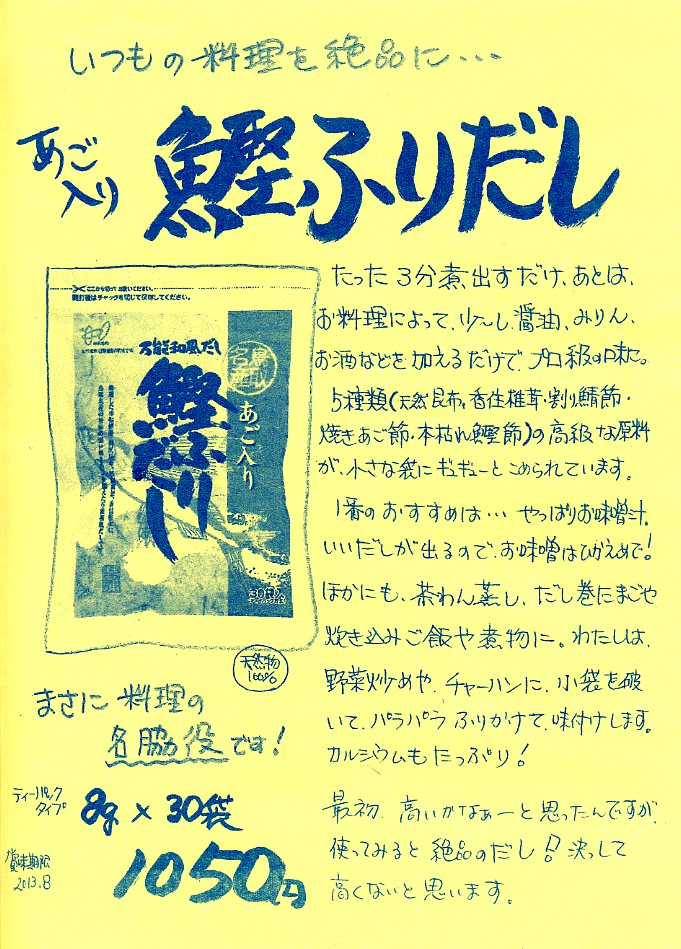 いつもの料理を絶品に…
あご
入り
鰹ふりだし
ここから切ってお使いください。
開封後はチャックを閉じて保存してください。
万能和風だし
鰹ふり
だし
あご入り
30袋入
天然物
100%
まさに料理の
名脇役です!
ティーパック
タイプ
8g×30袋
賞味期限
2013.8
1050円
たった3分煮出すだけ、あとは、
お料理によって、少〜し醤油、みりん、
お酒などを加えるだけで、プロ級の味に。
5種類(天然昆布・香住椎茸・割り鯖節・
焼きあご節・本枯れ鰹節)の高級な原料
が、小さな袋にギュギューとこめられています。
1番のおすすめは…やっぱりお味噌汁。
いいだしが出るので、お味噌はひかえめで!
ほかにも、茶わん蒸し、だし巻たまごや
炊き込みご飯や煮物に。わたしは、
野菜炒めや、チャーハンに、小袋を破
いて、パラパラふりかけて、味付けします。
カルシウムもたっぷり!
最初、高いかなぁーと思ったんですが、
使ってみると絶品のだし!!決して
高くないと思います。